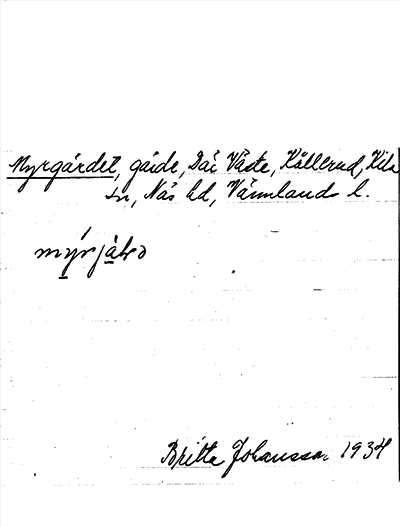 Myrgärdet, gärde, Där Väste, Källerud, Kila
sn, Näs hd, Värmlands l.
Britta Johansson 1934